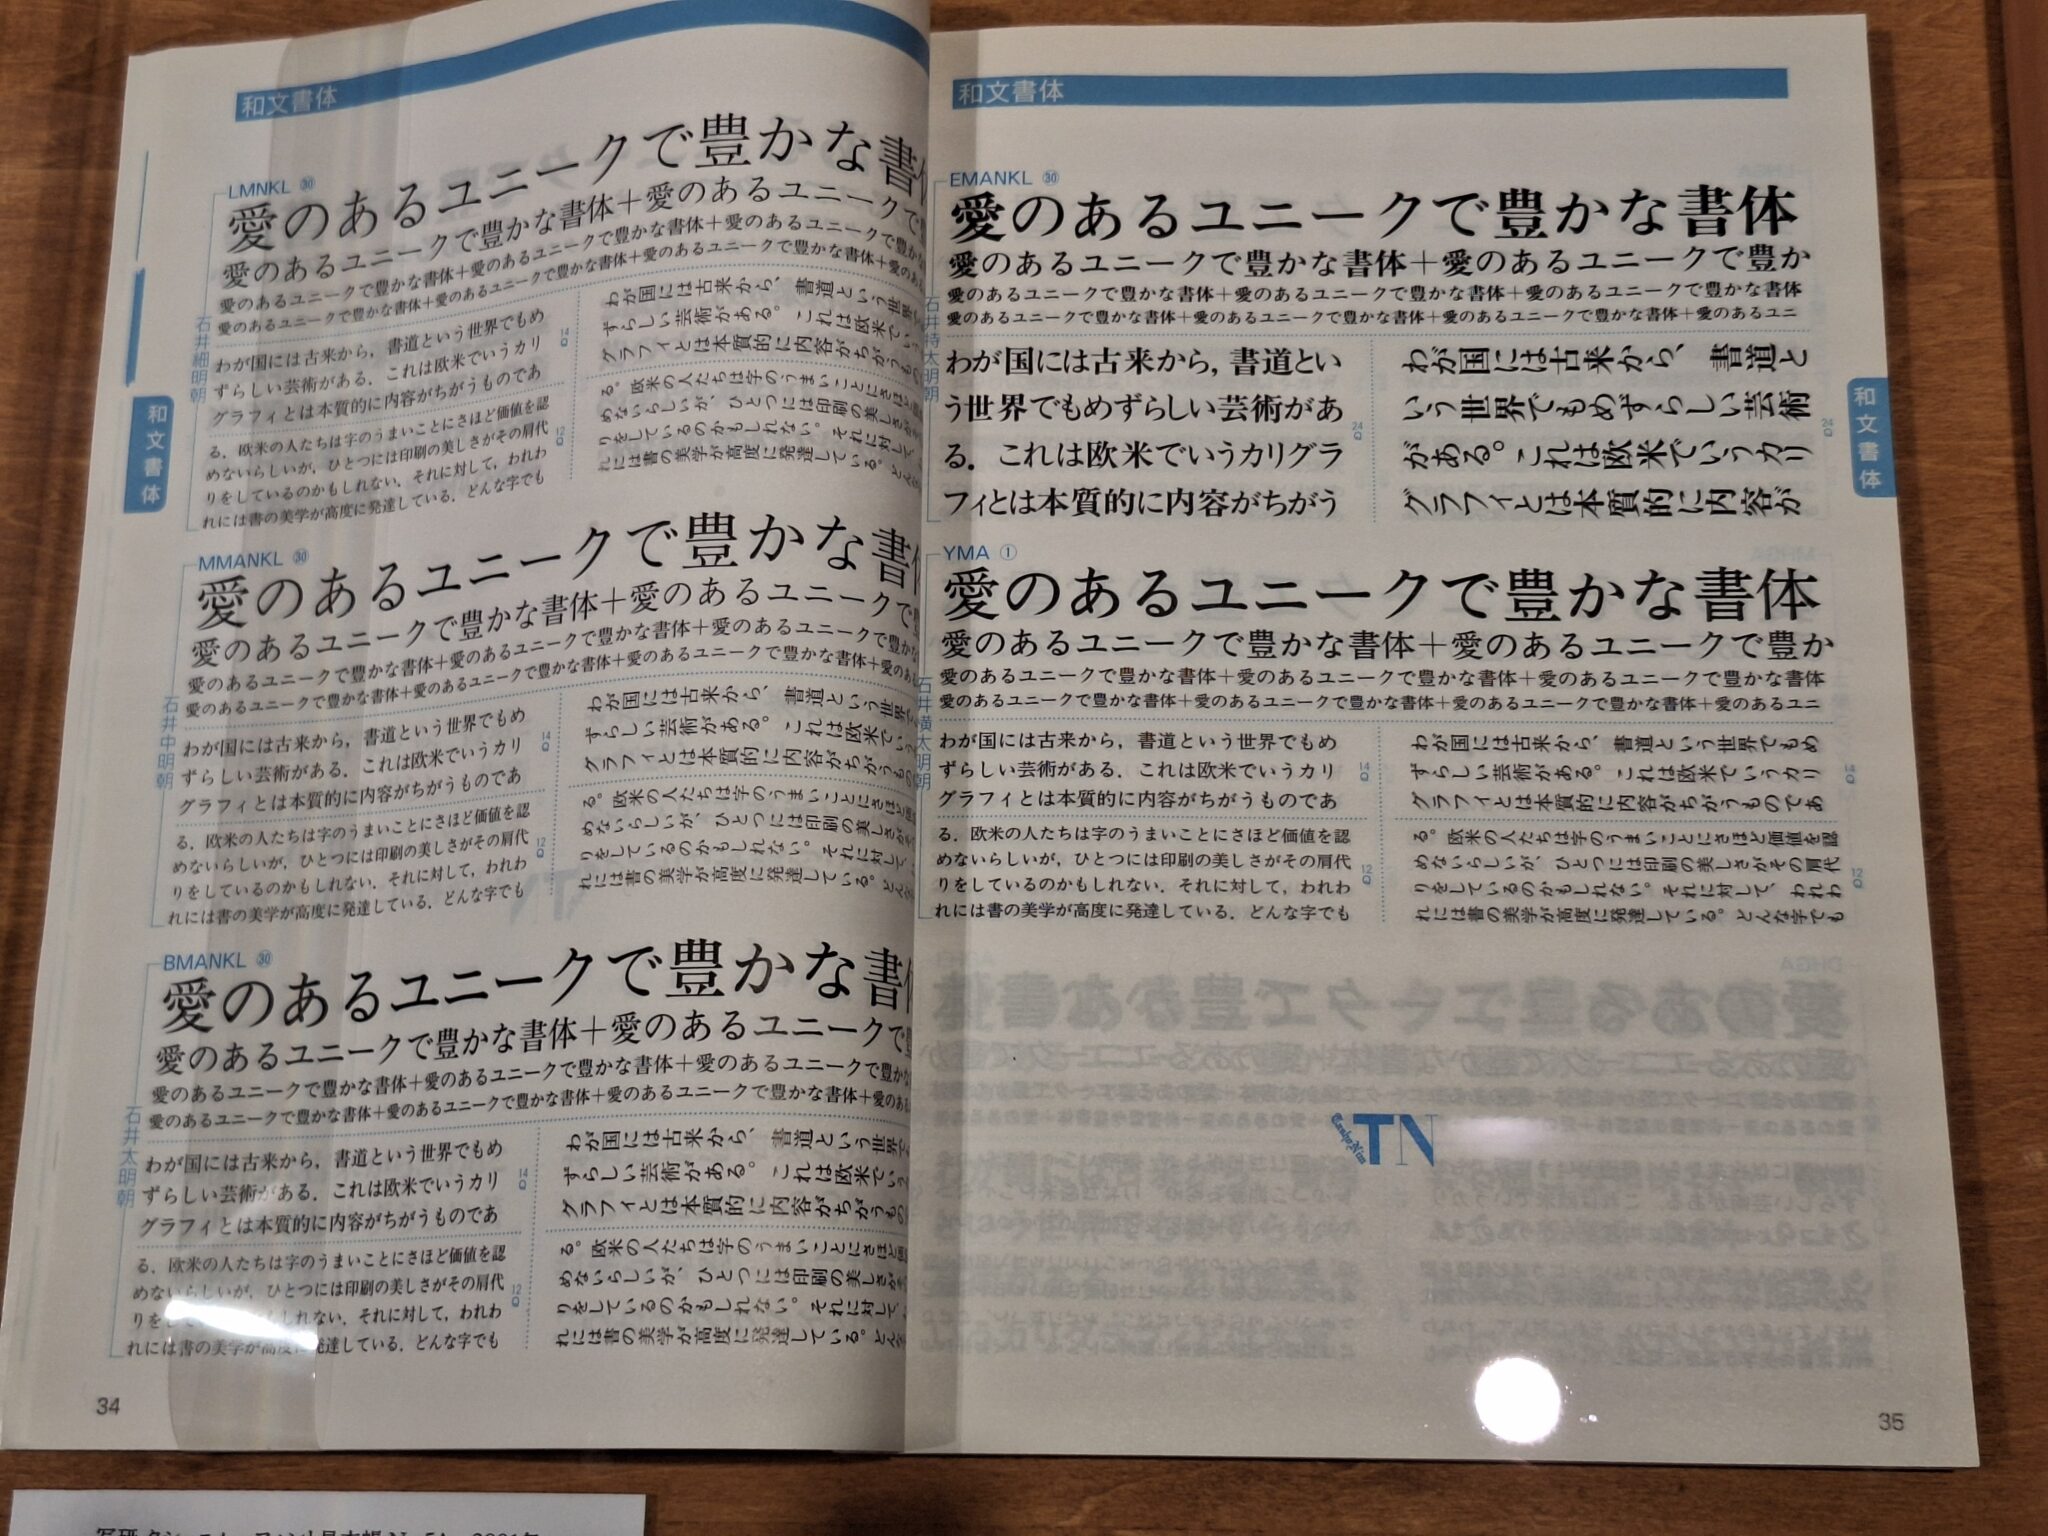 和文書体
LMNKL ㉚
愛のあるユニークで豊かな書体
愛のあるユニークで豊かな書体＋愛のあるユニークで
愛のあるユニークで豊かな書体＋愛のあるユニークで豊かな書体＋愛のあるユニークで豊か
愛のあるユニークで豊かな書体＋愛のあるユニークで豊かな書体＋愛のあるユニークで豊かな書体＋愛のあ
石井細明朝
わが国には古来から，書道という世界でもめ
ずらしい芸術がある．これは欧米でいうカリ
グラフィとは本質的に内容がちがうものであ
14Q
る．欧米の人たちは字のうまいことにさほど価値を認
めないらしいが，ひとつには印刷の美しさがその肩代
りをしているのかもしれない．それに対して，われわ
れには書の美学が高度に発達している．どんな字でも
12Q
わが国には古来から、書道という世界で
ずらしい芸術がある。これは欧米でいう
グラフィとは本質的に内容がちがうもの
る。欧米の人たちは字のうまいことにさほど価
めないらしいが、ひとつには印刷の美しさがそ
りをしているのかもしれない。それに対して、
れには書の美学が高度に発達している。どんな
MMANKL ㉚
愛のあるユニークで豊かな書体
愛のあるユニークで豊かな書体＋愛のあるユニークで
愛のあるユニークで豊かな書体＋愛のあるユニークで豊かな書体＋愛のあるユニークで豊かな
愛のあるユニークで豊かな書体＋愛のあるユニークで豊かな書体＋愛のあるユニークで豊かな書体＋愛のあ
石井中明朝
わが国には古来から，書道という世界でもめ
ずらしい芸術がある．これは欧米でいうカリ
グラフィとは本質的に内容がちがうものであ
14Q
る．欧米の人たちは字のうまいことにさほど価値を認
めないらしいが，ひとつには印刷の美しさがその肩代
りをしているのかもしれない．それに対して，われわ
れには書の美学が高度に発達している．どんな字でも
12Q
わが国には古来から、書道という世界で
ずらしい芸術がある。これは欧米でいう
グラフィとは本質的に内容がちがうもの
る。欧米の人たちは字のうまいことにさほど価
めないらしいが、ひとつには印刷の美しさがそ
りをしているのかもしれない。それに対して、
れには書の美学が高度に発達している。どんな
BMANKL ㉚
愛のあるユニークで豊かな書体
愛のあるユニークで豊かな書体＋愛のあるユニークで
愛のあるユニークで豊かな書体＋愛のあるユニークで豊かな書体＋愛のあるユニークで豊かな
愛のあるユニークで豊かな書体＋愛のあるユニークで豊かな書体＋愛のあるユニークで豊かな書体＋愛のあ
石井太明朝
わが国には古来から，書道という世界でもめ
ずらしい芸術がある．これは欧米でいうカリ
グラフィとは本質的に内容がちがうものであ
14Q
る．欧米の人たちは字のうまいことにさほど価値を認
めないらしいが，ひとつには印刷の美しさがその肩代
りをしているのかもしれない．それに対して，われわ
れには書の美学が高度に発達している．どんな字でも
12Q
わが国には古来から、書道という世界で
ずらしい芸術がある。これは欧米でいう
グラフィとは本質的に内容がちがうもの
る。欧米の人たちは字のうまいことにさほど価
めないらしいが、ひとつには印刷の美しさがそ
りをしているのかもしれない。それに対して、
れには書の美学が高度に発達している。どんな
和文書体
34
和文書体
EMANKL ㉚
愛のあるユニークで豊かな書体
愛のあるユニークで豊かな書体＋愛のあるユニークで豊か
愛のあるユニークで豊かな書体＋愛のあるユニークで豊かな書体＋愛のあるユニークで豊かな書体
愛のあるユニークで豊かな書体＋愛のあるユニークで豊かな書体＋愛のあるユニークで豊かな書体＋愛のあるユニ
石井特太明朝
わが国には古来から，書道とい
う世界でもめずらしい芸術があ
る．これは欧米でいうカリグラ
フィとは本質的に内容がちがう
24Q
わが国には古来から、書道と
いう世界でもめずらしい芸術
がある。これは欧米でいうカリ
グラフィとは本質的に内容が
24Q
YMA ①
愛のあるユニークで豊かな書体
愛のあるユニークで豊かな書体＋愛のあるユニークで豊か
愛のあるユニークで豊かな書体＋愛のあるユニークで豊かな書体＋愛のあるユニークで豊かな書体
愛のあるユニークで豊かな書体＋愛のあるユニークで豊かな書体＋愛のあるユニークで豊かな書体＋愛のあるユニ
石井横太明朝
わが国には古来から，書道という世界でもめ
ずらしい芸術がある．これは欧米でいうカリ
グラフィとは本質的に内容がちがうものであ
14Q
る．欧米の人たちは字のうまいことにさほど価値を認
めないらしいが，ひとつには印刷の美しさがその肩代
りをしているのかもしれない．それに対して，われわ
れには書の美学が高度に発達している．どんな字でも
12Q
わが国には古来から、書道という世界でもめ
ずらしい芸術がある。これは欧米でいうカリ
グラフィとは本質的に内容がちがうものであ
14Q
る。欧米の人たちは字のうまいことにさほど価値を認
めないらしいが、ひとつには印刷の美しさがその肩代
りをしているのかもしれない。それに対して、われわ
れには書の美学が高度に発達している。どんな字でも
12Q
和文書体
TN
35